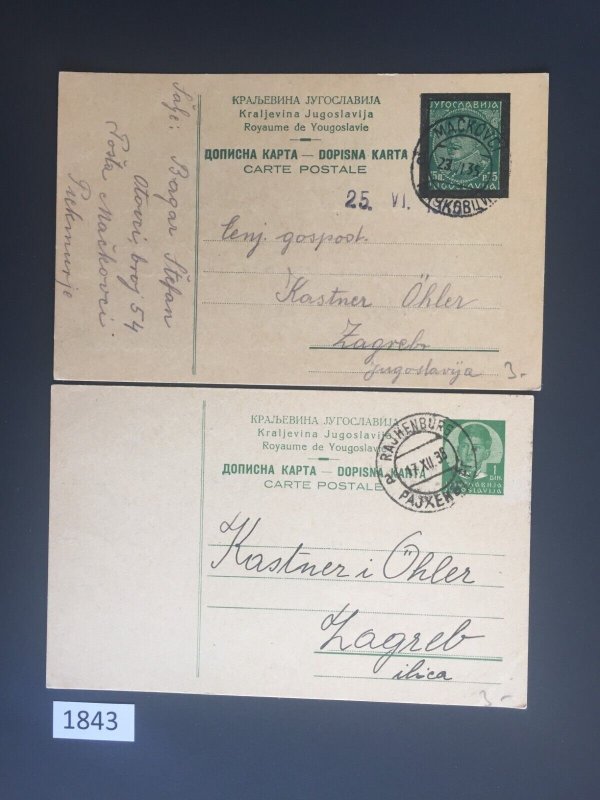 Šalje: Bagar Štefan
Otovci, broj 54
Pošta Mačkovci
Prekmurje
КРАЉЕВИНА ЈУГОСЛАВИЈА
Kraljevina Jugoslavija
Royaume de Yougoslavie
ДОПИСНА КАРТА — DOPISNA KARTA
CARTE POSTALE
ЈУГОСЛАВИЈА
MAČKOVCI
25. VI.
Cenj. gospost.
Kastner Öhler
Zagreb
Jugoslavija
3.-
КРАЉЕВИНА ЈУГОСЛАВИЈА
Kraljevina Jugoslavija
Royaume de Yougoslavie
ДОПИСНА КАРТА — DOPISNA KARTA
CARTE POSTALE
RAJHENBURG
17.XII.36
1
Kastner i Öhler
Zagreb
ilica
3.-
1843